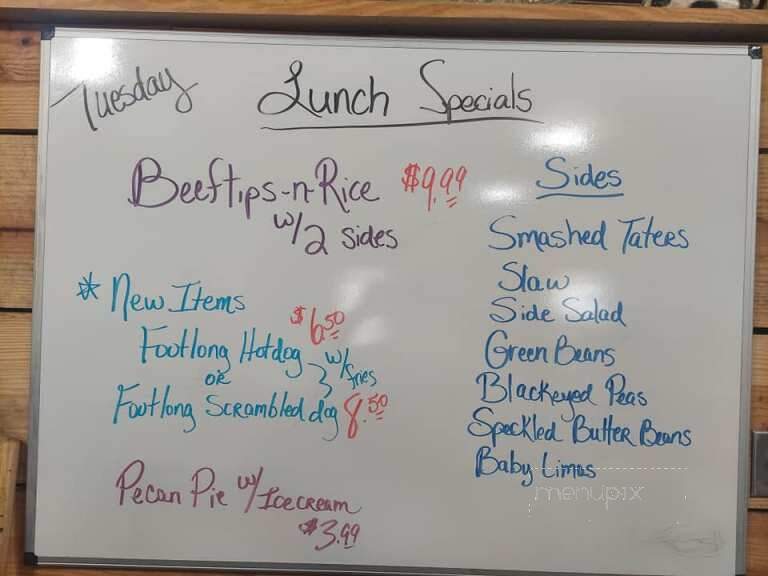 Tuesday
Lunch Specials
Beeftips-n-Rice $9.99
w/2 sides
* New Items
Footlong Hotdog $6.50
or
w/fries
Footlong Scrambled dog 8.50
Pecan Pie w/Icecream
$3.99
Sides
Smashed Tatees
Slaw
Side Salad
Green Beans
Blackeyed Peas
Speckled Butter Beans
Baby Limas
menupix